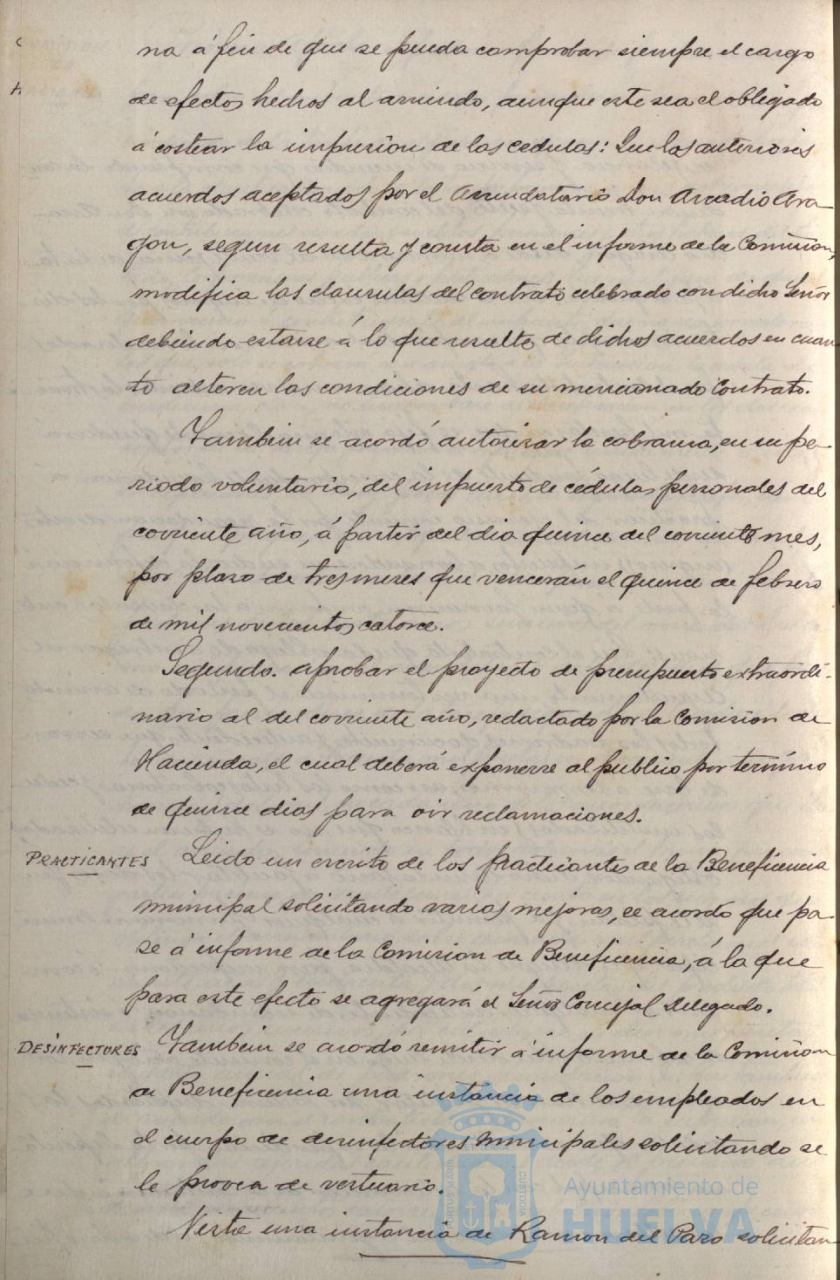 na á fin de que se pueda comprobar siempre el cargo
de efectos hechos al arriendo, aunque este sea el obligado
á costear la impresion de las cedulas: Que los anteriores
acuerdos aceptados por el Arrendatario Don Arcadio Ara-
gon, segun resulta y consta en el informe de la Comision,
modifica las clausulas del contrato celebrado con dicho Señor
debiendo estarse á lo que resulte de dichos acuerdos en cuan
to alteren las condiciones de su mencionado Contrato.
Tambien se acordó autorizar la cobranza, en su pe-
riodo voluntario, del impuesto de cédulas personales del
corriente año, á partir del dia quince del corriente mes,
por plazo de tres meses que vencerán el quince de febrero
de mil novecientos catorce.
Segundo. aprobar el proyecto de presupuesto extraordi-
nario al del corriente año, redactado por la Comision de
Hacienda, el cual deberá exponerse al publico por termino
de quince dias para oir reclamaciones.
PRACTICANTES Leido un escrito de los practicantes de la Beneficencia
municipal solicitando varias mejoras, se acordo que pa-
se á informe de la Comision de Beneficencia, á la que
para este efecto se agregará el Señor Concejal Delegado.
DESINFECTORES Tambien se acordó remitir á informe de la Comision
de Beneficencia una instancia de los empleados en
el cuerpo de desinfectores municipales solicitando se
le provea de vestuario.
Vista una instancia de Ramon del Pazo solicitan
Ayuntamiento de
HUELVA